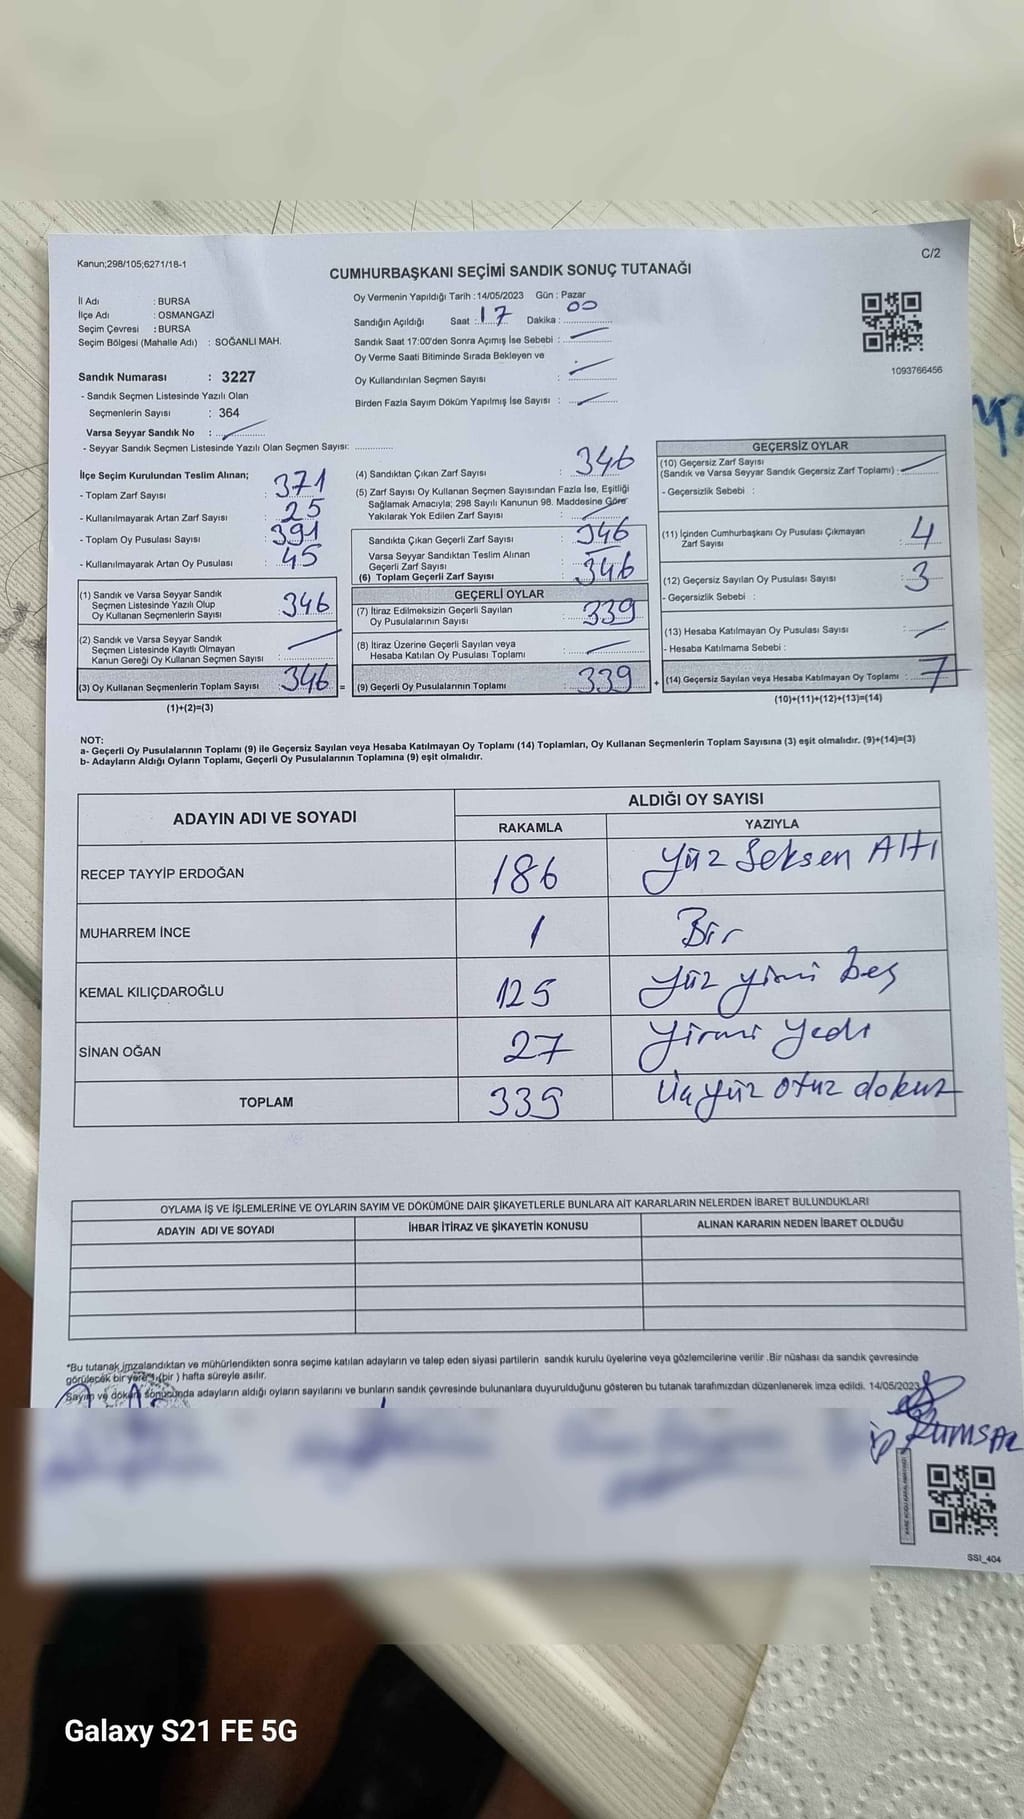 Kanun;298/105;6271/18-1
C/2
CUMHURBAŞKANI SEÇİMİ SANDIK SONUÇ TUTANAĞI
İl Adı : BURSA
İlçe Adı : OSMANGAZİ
Seçim Çevresi : BURSA
Seçim Bölgesi (Mahalle Adı) : SOĞANLI MAH.
Sandık Numarası : 3227
- Sandık Seçmen Listesinde Yazılı Olan
Seçmenlerin Sayısı : 364
Varsa Seyyar Sandık No :
- Seyyar Sandık Seçmen Listesinde Yazılı Olan Seçmen Sayısı:
Oy Vermenin Yapıldığı Tarih :14/05/2023 Gün : Pazar
Sandığın Açıldığı Saat : 17 Dakika : 00
Sandık Saat 17:00'den Sonra Açımış İse Sebebi :
Oy Verme Saati Bitiminde Sırada Bekleyen ve
Oy Kullandırılan Seçmen Sayısı :
Birden Fazla Sayım Döküm Yapılmış İse Sayısı :
1093766456
İlçe Seçim Kurulundan Teslim Alınan;
- Toplam Zarf Sayısı : 371
- Kullanılmayarak Artan Zarf Sayısı : 25
- Toplam Oy Pusulası Sayısı : 391
- Kullanılmayarak Artan Oy Pusulası : 45
(1) Sandık ve Varsa Seyyar Sandık
Seçmen Listesinde Yazılı Olup
Oy Kullanan Seçmenlerin Sayısı : 346
(2) Sandık ve Varsa Seyyar Sandık
Seçmen Listesinde Kayıtlı Olmayan
Kanun Gereği Oy Kullanan Seçmen Sayısı :
(3) Oy Kullanan Seçmenlerin Toplam Sayısı : 346 =
(1)+(2)=(3)
(4) Sandıktan Çıkan Zarf Sayısı : 346
(5) Zarf Sayısı Oy Kullanan Seçmen Sayısından Fazla İse, Eşitliği
Sağlamak Amacıyla; 298 Sayılı Kanunun 98. Maddesine Göre
Yakılarak Yok Edilen Zarf Sayısı :
Sandıkta Çıkan Geçerli Zarf Sayısı : 346
Varsa Seyyar Sandıktan Teslim Alınan
Geçerli Zarf Sayısı :
(6) Toplam Geçerli Zarf Sayısı : 346
GEÇERLİ OYLAR
(7) İtiraz Edilmeksizin Geçerli Sayılan
Oy Pusulalarının Sayısı : 339
(8) İtiraz Üzerine Geçerli Sayılan veya
Hesaba Katılan Oy Pusulası Toplamı :
(9) Geçerli Oy Pusulalarının Toplamı : 339 +
GEÇERSİZ OYLAR
(10) Geçersiz Zarf Sayısı
(Sandık ve Varsa Seyyar Sandık Geçersiz Zarf Toplamı) :
- Geçersizlik Sebebi :
(11) İçinden Cumhurbaşkanı Oy Pusulası Çıkmayan
Zarf Sayısı : 4
(12) Geçersiz Sayılan Oy Pusulası Sayısı : 3
- Geçersizlik Sebebi :
(13) Hesaba Katılmayan Oy Pusulası Sayısı :
- Hesaba Katılmama Sebebi :
(14) Geçersiz Sayılan veya Hesaba Katılmayan Oy Toplamı : 7
(10)+(11)+(12)+(13)=(14)
NOT:
a- Geçerli Oy Pusulalarının Toplamı (9) ile Geçersiz Sayılan veya Hesaba Katılmayan Oy Toplamı (14) Toplamları, Oy Kullanan Seçmenlerin Toplam Sayısına (3) eşit olmalıdır. (9)+(14)=(3)
b- Adayların Aldığı Oyların Toplamı, Geçerli Oy Pusulalarının Toplamına (9) eşit olmalıdır.
ADAYIN ADI VE SOYADI ALDIĞI OY SAYISI
RAKAMLA YAZIYLA
RECEP TAYYİP ERDOĞAN 186 Yüz Seksen Altı
MUHARREM İNCE 1 Bir
KEMAL KILIÇDAROĞLU 125 Yüz yirmi beş
SİNAN OĞAN 27 Yirmi Yedi
TOPLAM 339 Üçyüz otuz dokuz
OYLAMA İŞ VE İŞLEMLERİNE VE OYLARIN SAYIM VE DÖKÜMÜNE DAİR ŞİKAYETLERLE BUNLARA AİT KARARLARIN NELERDEN İBARET BULUNDUKLARI
ADAYIN ADI VE SOYADI İHBAR İTİRAZ VE ŞİKAYETİN KONUSU ALINAN KARARIN NEDEN İBARET OLDUĞU
*Bu tutanak imzalandıktan ve mühürlendikten sonra seçime katılan adayların ve talep eden siyasi partilerin sandık kurulu üyelerine veya gözlemcilerine verilir .Bir nüshası da sandık çevresinde
görülecek bir yere 1 (bir ) hafta süreyle asılır.
Sayım ve döküm sonucunda adayların aldığı oyların sayılarını ve bunların sandık çevresinde bulunanlara duyurulduğunu gösteren bu tutanak tarafımızdan düzenlenerek imza edildi. 14/05/2023
SSI_404
Galaxy S21 FE 5G